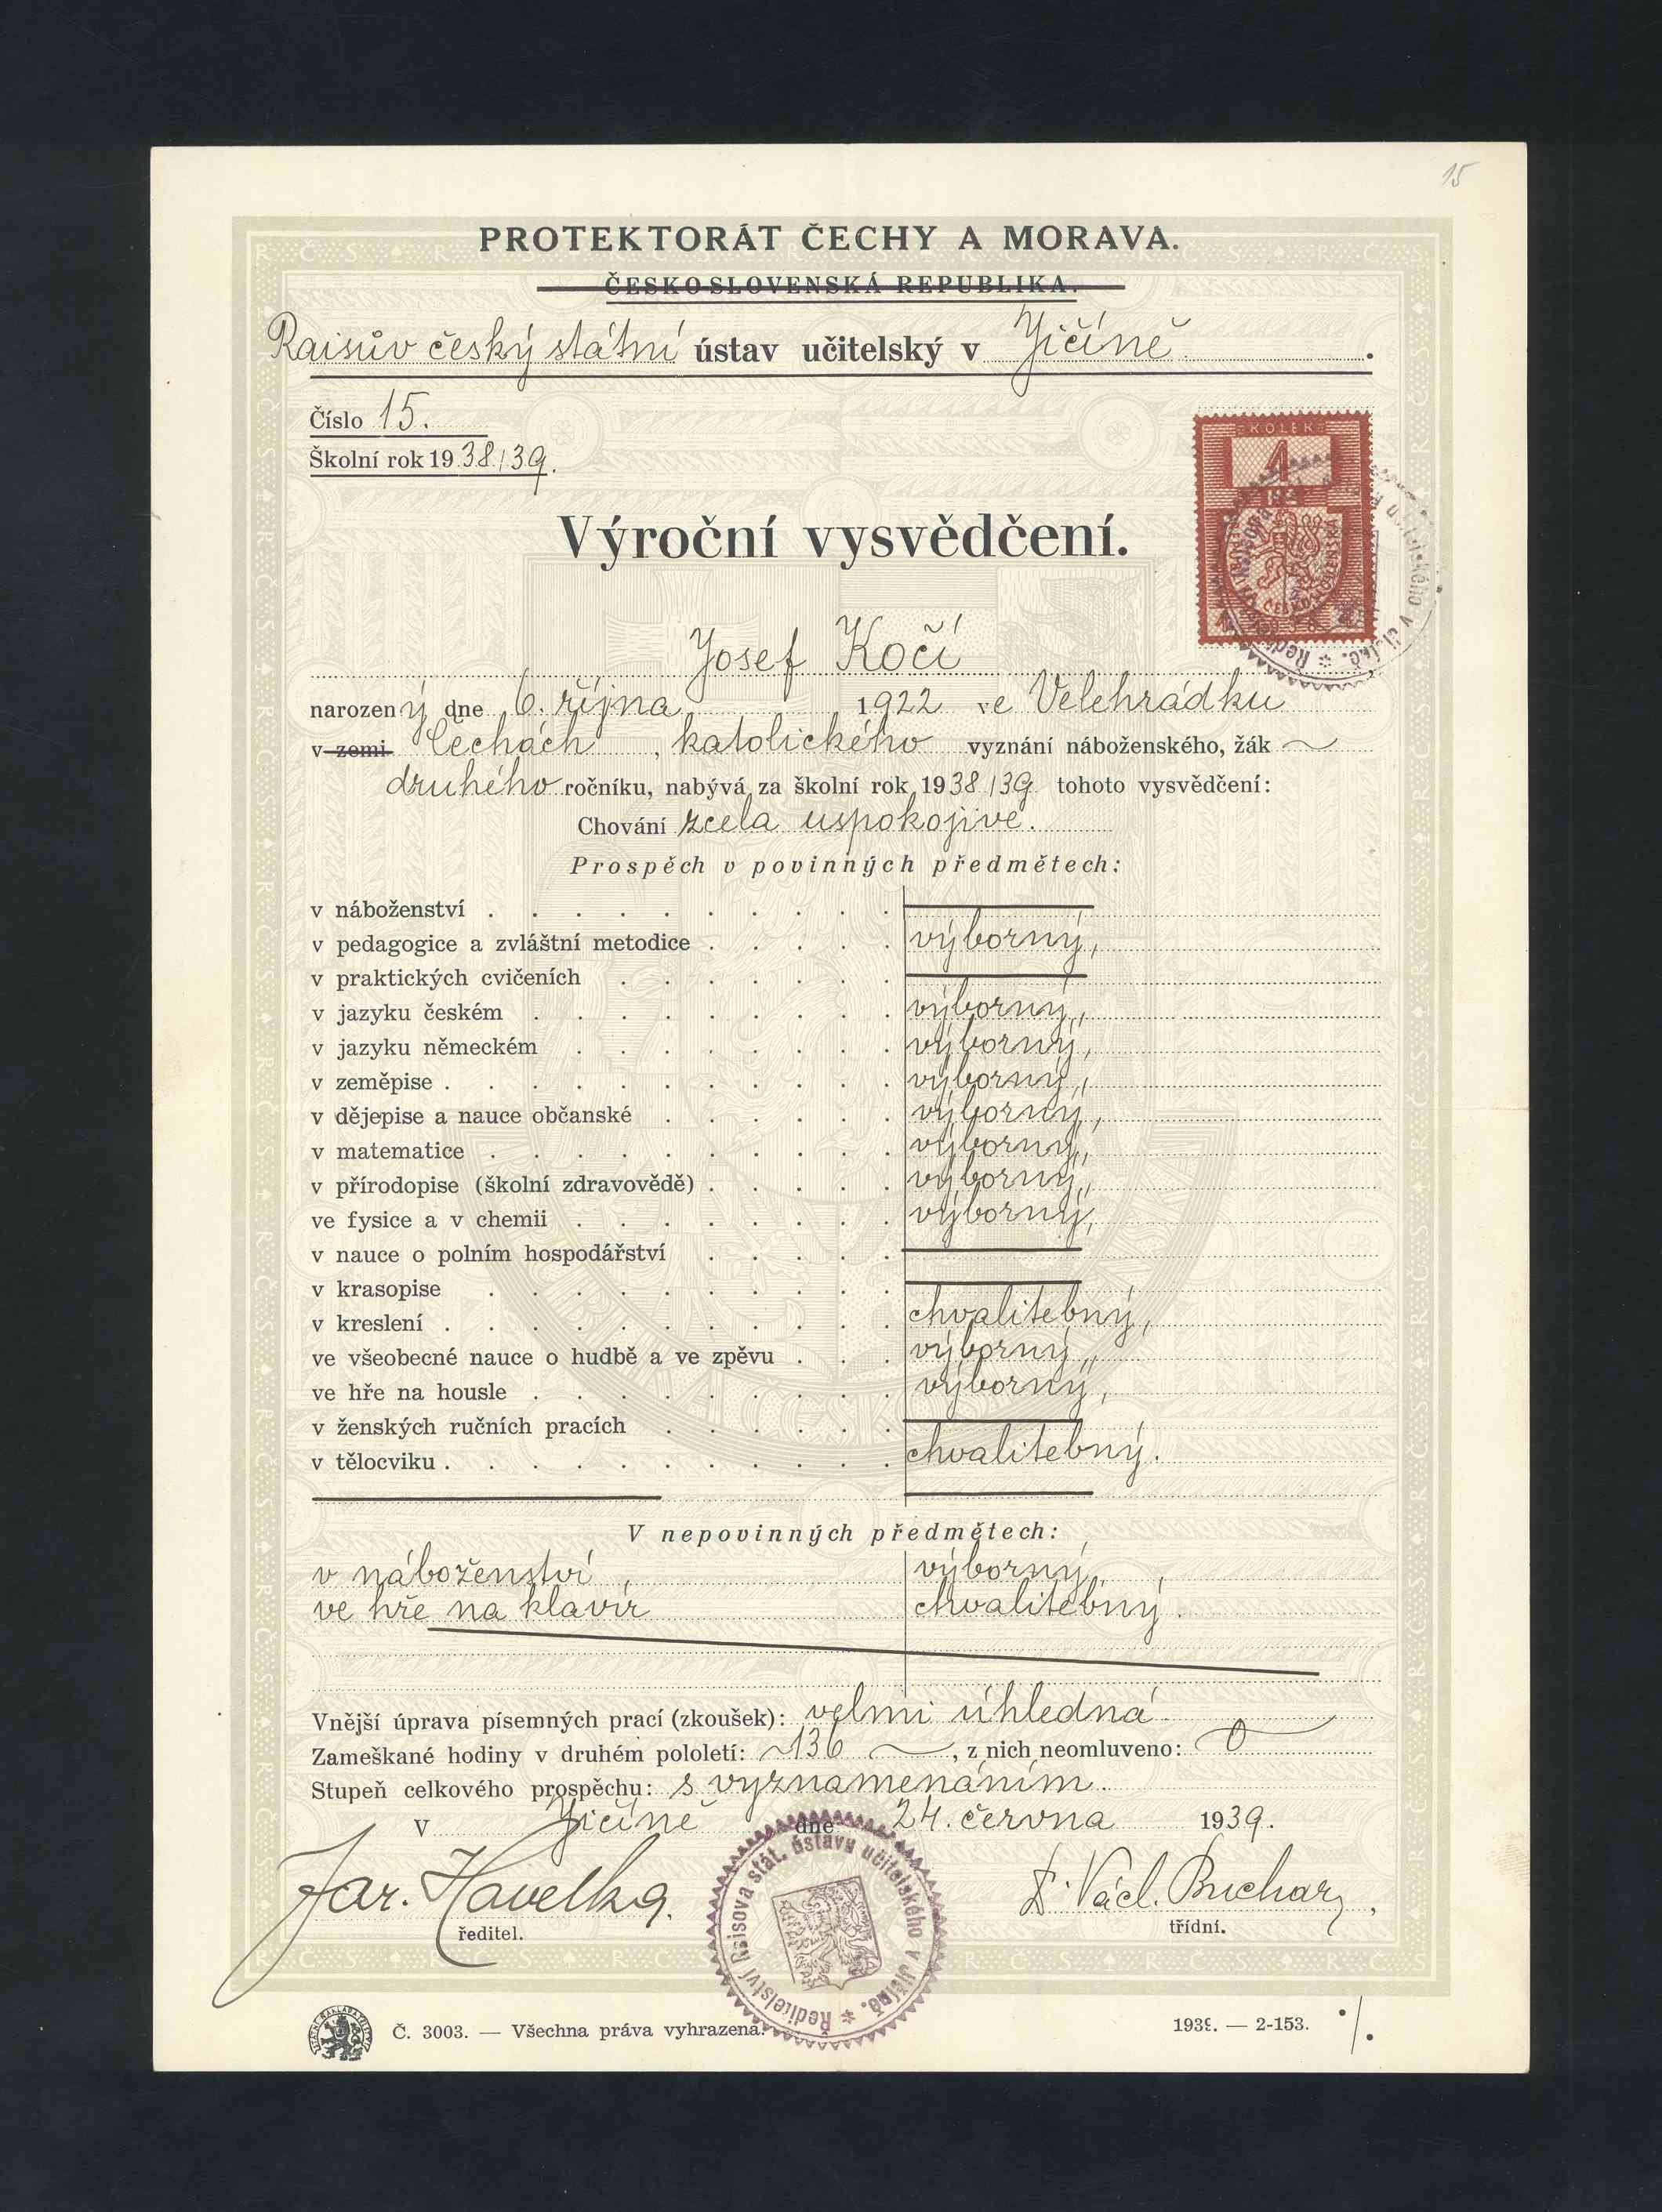 15
PROTEKTORÁT ČECHY A MORAVA.
ČESKOSLOVENSKÁ REPUBLIKA.
Raisův český státní ústav učitelský v Jičíně.
Číslo 15.
Školní rok 1938/39.
KOLEK
4
ČESKOSLOVENSKÁ
Výroční vysvědčení.
Josef Kočí
narozený dne 6. října 1922 ve Velehrádku
v zemi Čechách, katolického vyznání náboženského, žák
druhého ročníku, nabývá za školní rok 1938/39 tohoto vysvědčení:
Chování zcela uspokojivé.
Prospěch v povinných předmětech:
v náboženství
v pedagogice a zvláštní metodice výborný,
v praktických cvičeních
v jazyku českém výborný,
v jazyku německém výborný,
v zeměpise výborný,
v dějepise a nauce občanské výborný,
v matematice výborný,
v přírodopise (školní zdravovědě) výborný,
ve fysice a v chemii výborný,
v nauce o polním hospodářství
v krasopise
v kreslení chvalitebný,
ve všeobecné nauce o hudbě a ve zpěvu výborný,
ve hře na housle výborný,
v ženských ručních pracích
v tělocviku chvalitebný.
V nepovinných předmětech:
v náboženství, výborný,
ve hře na klavír chvalitebný.
Vnější úprava písemných prací (zkoušek): velmi úhledná
Zameškané hodiny v druhém pololetí: 136, z nich neomluveno: 0
Stupeň celkového prospěchu: s vyznamenáním.
V Jičíně dne 24. června 1939.
Ředitelství Raisova stát. ústavu učitelského v Jičíně.
Jar. Havelka.
ředitel.
Dr. Václ. Buchar,
třídní.
Č. 3003. — Všechna práva vyhrazena.
1939. — 2-153. ./.